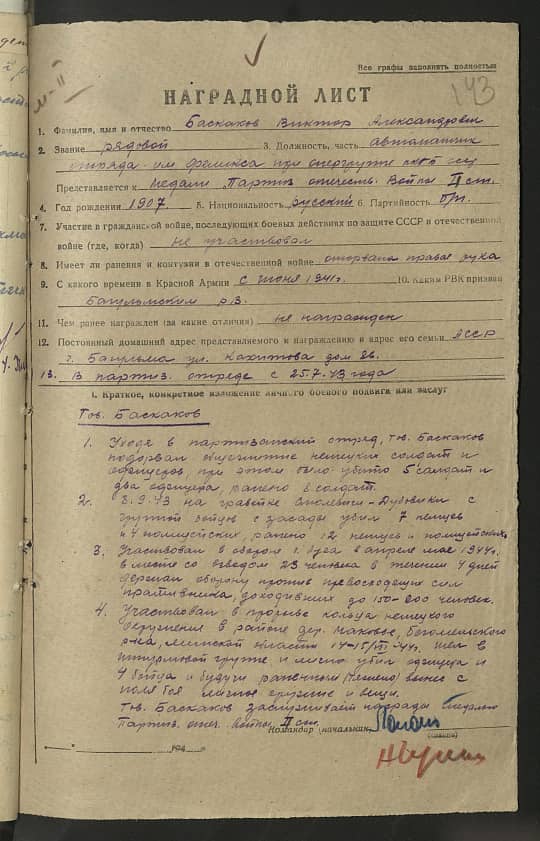 Все графы заполнить полностью
143
м-II
НАГРАДНОЙ ЛИСТ
1. Фамилия, имя и отчество Баскаков Виктор Александрович
2. Звание рядовой 3. Должность, часть автоматчик
отряда им. при опергруппе
Представляется к медали Партиз. отечеств. войны II ст.
4. Год рождения 1907 5. Национальность русский 6. Партийность
7. Участие в гражданской войне, последующих боевых действиях по защите СССР и отечественной
войне (где, когда) не участвовал
8. Имеет ли ранения и контузии в отечественной войне оторвана правая рука
9. С какого времени в Красной Армии с июня 1941г. 10. Каким РВК призван
11. Чем ранее награжден (за какие отличия) не награжден
12. Постоянный домашний адрес представляемого к награждению и адрес его семьи
г. ул. дом 26.
13. В партиз. отряде с 25.7.43 года
I. Краткое, конкретное изложение личного боевого подвига или заслуг
Тов. Баскаков
1. Уходя в партизанский отряд, тов. Баскаков
подорвал немецких солдат и
офицеров, при этом было убито 5 солдат и
два офицера, ранено 8 солдат.
2. 8.9.43 на гравейке Смолевичи - Дубовики с
группой бойцов с засады убил 7 немцев
и 4 полицейских, ранено 12 немцев и полицейских
3. Участвовал в обороне в апреле мае 1944г.
вместе со взводом 23 человека в течении 4 дней
держали оборону против превосходящих сил
противника, доходивших до 150-200 человек.
4. Участвовал в прорыве кольца немецкого
окружения в районе дер. Маковье, Бегомльского
р-на, Минской области 14-15/VI-44г. шел в
штурмовой группе и лично убил офицера и
4 бойца и будучи раненным вынес с
поля боя личное оружие и вещи.
Тов. Баскаков заслуживает награды медалью
Партиз. отеч. войны II ст.
Командир (начальник)
194